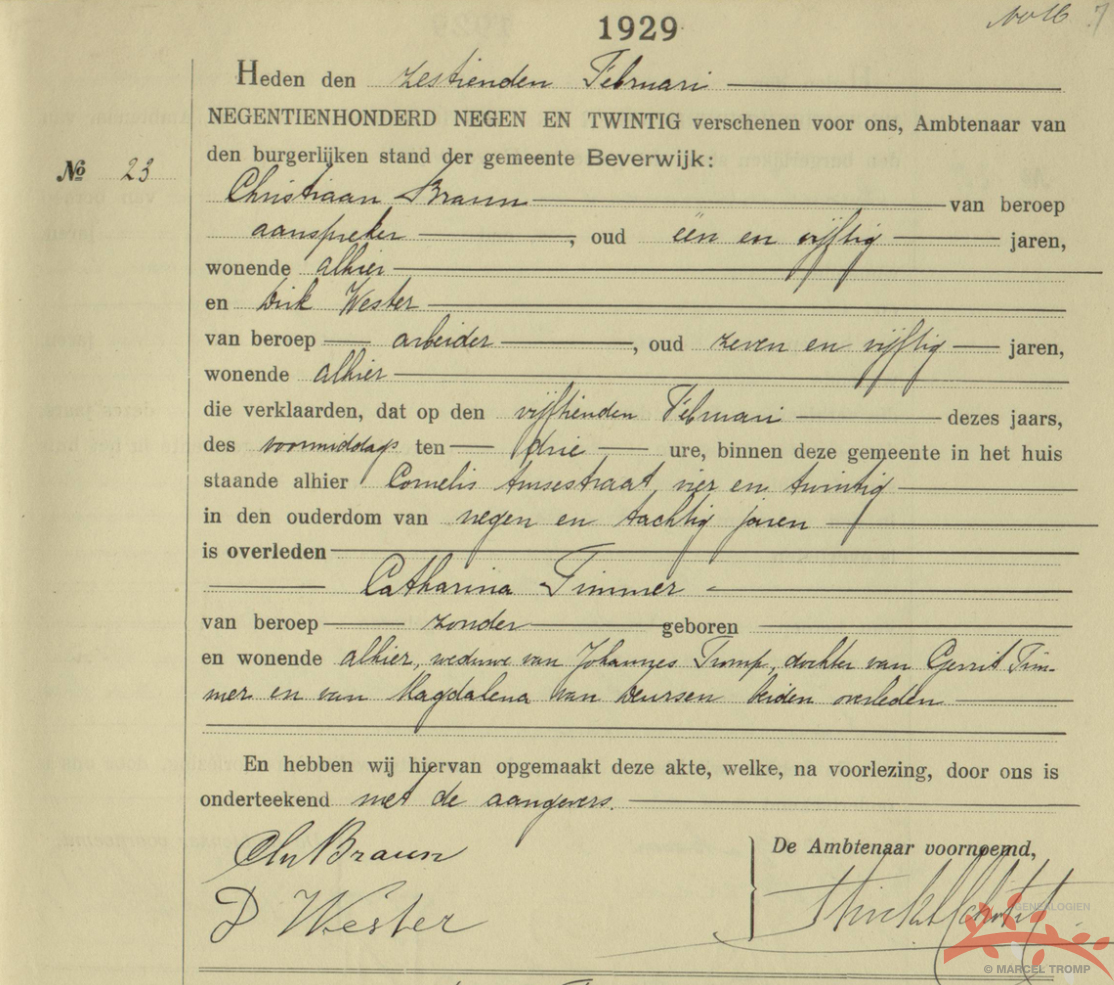 1929
Heden den zestienden Februari
NEGENTIENHONDERD NEGEN EN TWINTIG verschenen voor ons, Ambtenaar van
den burgerlijken stand der gemeente Beverwijk:
No 23
Christiaan Braun van beroep
aanspreker, oud een en vijftig jaren,
wonende alhier
en Dirk Wester
van beroep arbeider, oud zeven en vijftig jaren,
wonende alhier
die verklaarden, dat op den vijftienden Februari dezes jaars,
des voormiddags ten drie ure, binnen deze gemeente in het huis
staande alhier Cornelis straat, vier en twintig
in den ouderdom van negen en tachtig jaren
is overleden
Catharina Timmer
van beroep zonder geboren
en wonende alhier, weduwe van Johannes Tromp, dochter van Gerrit Tim-
mer en van Magdalena van Deursen beiden overleden
En hebben wij hiervan opgemaakt deze akte, welke, na voorlezing, door ons is
onderteekend met de aangevers.
Chr Braun
De Ambtenaar voornoemd,
D Wester
GENEALOGIEN
© MARCEL TROMP